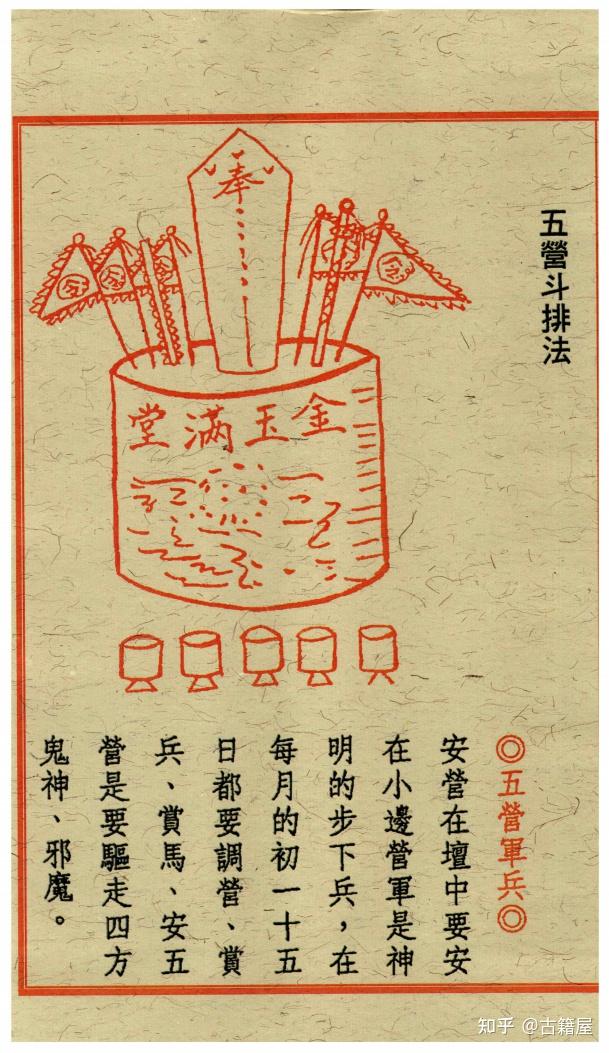 五營斗排法
奉
金玉滿堂
◎五營軍兵◎
安營在壇中要安
在小邊營軍是神
明的步下兵，在
每月的初一十五
日都要調營、賞
兵、賞馬、安五
營是要驅走四方
鬼神、邪魔。
知乎 @古籍屋